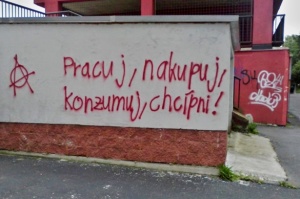 Pracuj, nakupuj,
konzumuj, chcípni!